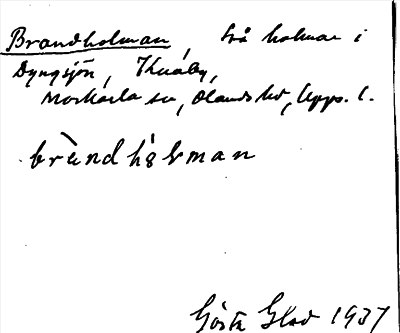 Brandholman, två holmar i
Dyngsjön, Knaby,
Morkarla sn, Olands hd, Upps. l.
brandhålman
Gösta Glad 1937